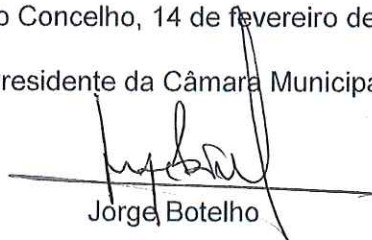 o Concelho, 14 de fevereiro de
residente da Câmara Municipa
Jorge Botelho